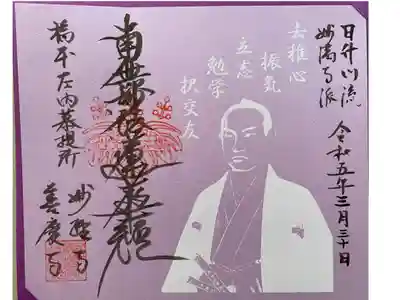 日什門流
妙満寺派
令和五年三月三十日
去稚心
振気
立志
勉学
択交友
南無妙法蓮華経
橋本左内菩提所
善慶寺